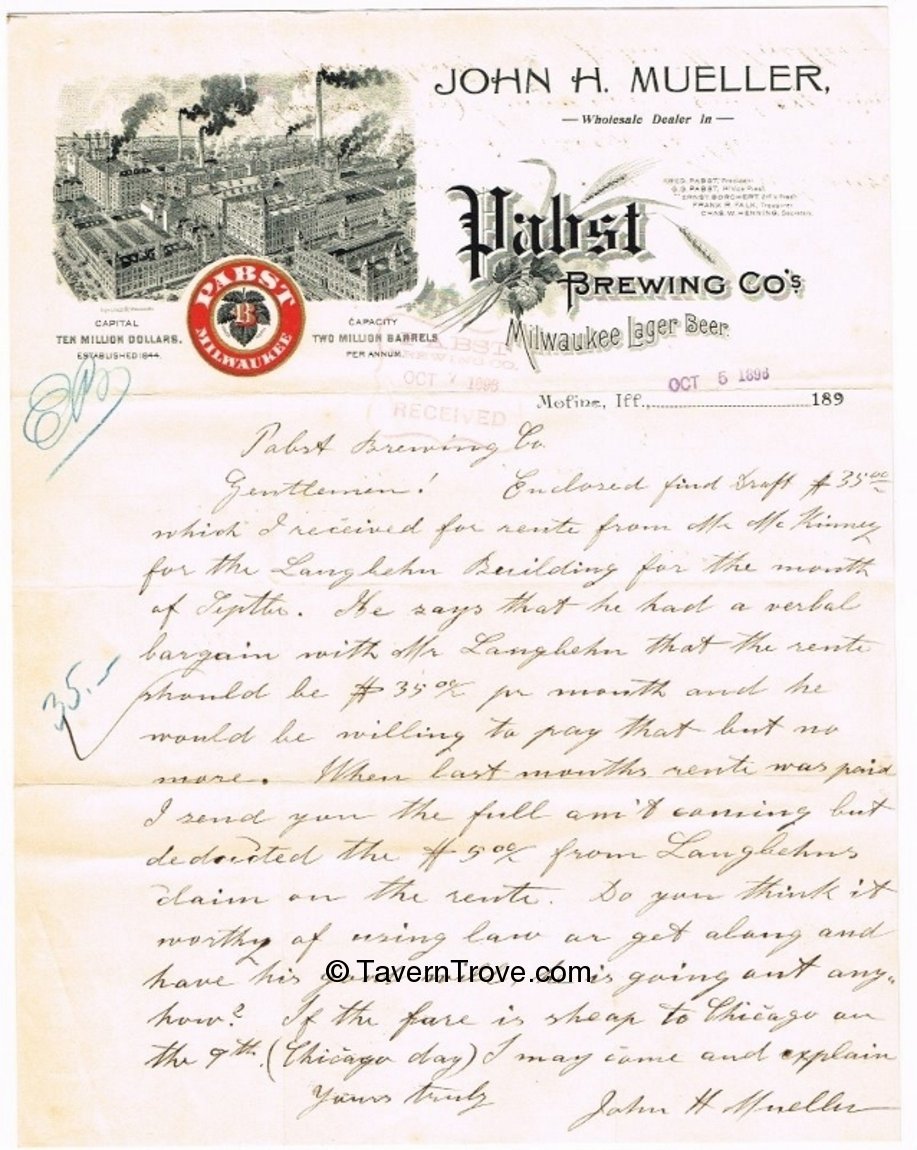 JOHN H. MUELLER,
— Wholesale Dealer In —
FRED. PABST, President
G.G. PABST, 1st Vice Prest.
ERNST BORCHERT 2d V. Prest.
FRANK R. FALK, Treasurer
CHAS. W. HENNING, Secretary.
Pabst
BREWING CO'S
Milwaukee Lager Beer.
PABST
B
MILWAUKEE
CAPITAL
TEN MILLION DOLLARS.
ESTABLISHED 1844.
CAPACITY
TWO MILLION BARRELS
PER ANNUM.
PABST
BREWING CO.
OCT 7 1896
RECEIVED
OCT 5 1896
Moline, Ill., 189
Pabst Brewing Co.
Gentlemen! Enclosed find Draft $35.00
which I received for rente from Mr McKinney
for the Langbehn Building for the month
of Septbr. He says that he had a verbal
bargain with Mr Langbehn that the rente
35.-
should be $35 00/ pr month and he
would be willing to pay that but no
more. When last months rente was paid
I send you the full am't coming but
deducted the $5 00/ from Langbehns
claim on the rente. Do you think it
worthy of using law or get along and
have his is going out any-
how? If the fare is sheap to Chicago on
the 9th. (Chicago day) I may come and explain
Yours truly
John H Mueller
© TavernTrove.com